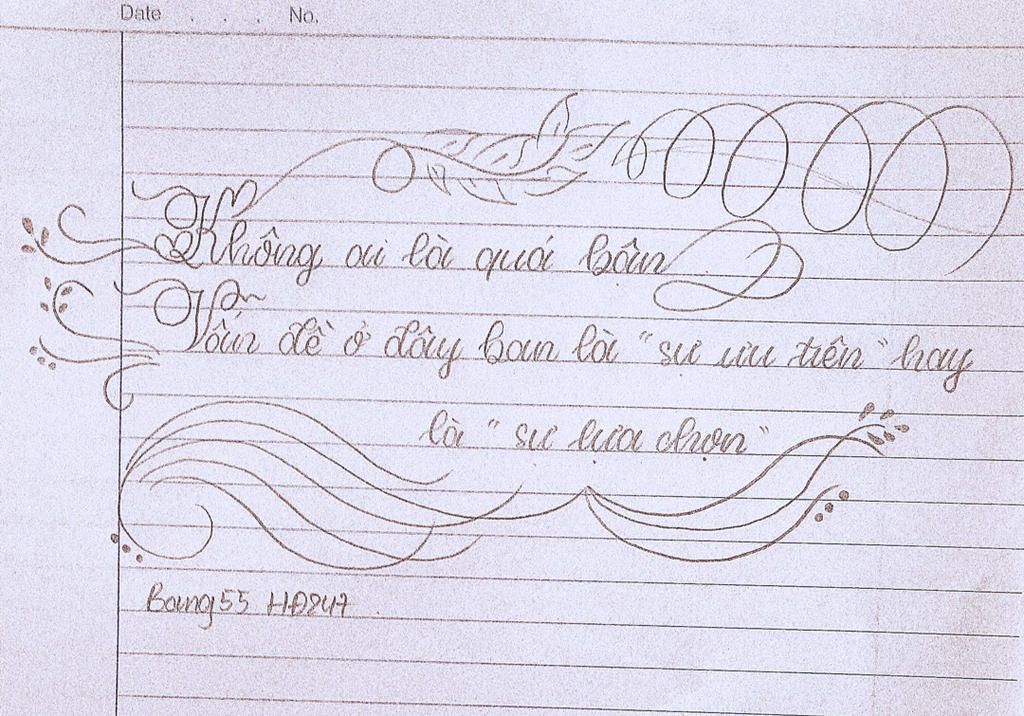 Date . . . No.
Không ai là quá bận
Vấn đề ở đây bạn là "sự ưu tiên" hay
là "sự lựa chọn"
Bang55 HĐ247